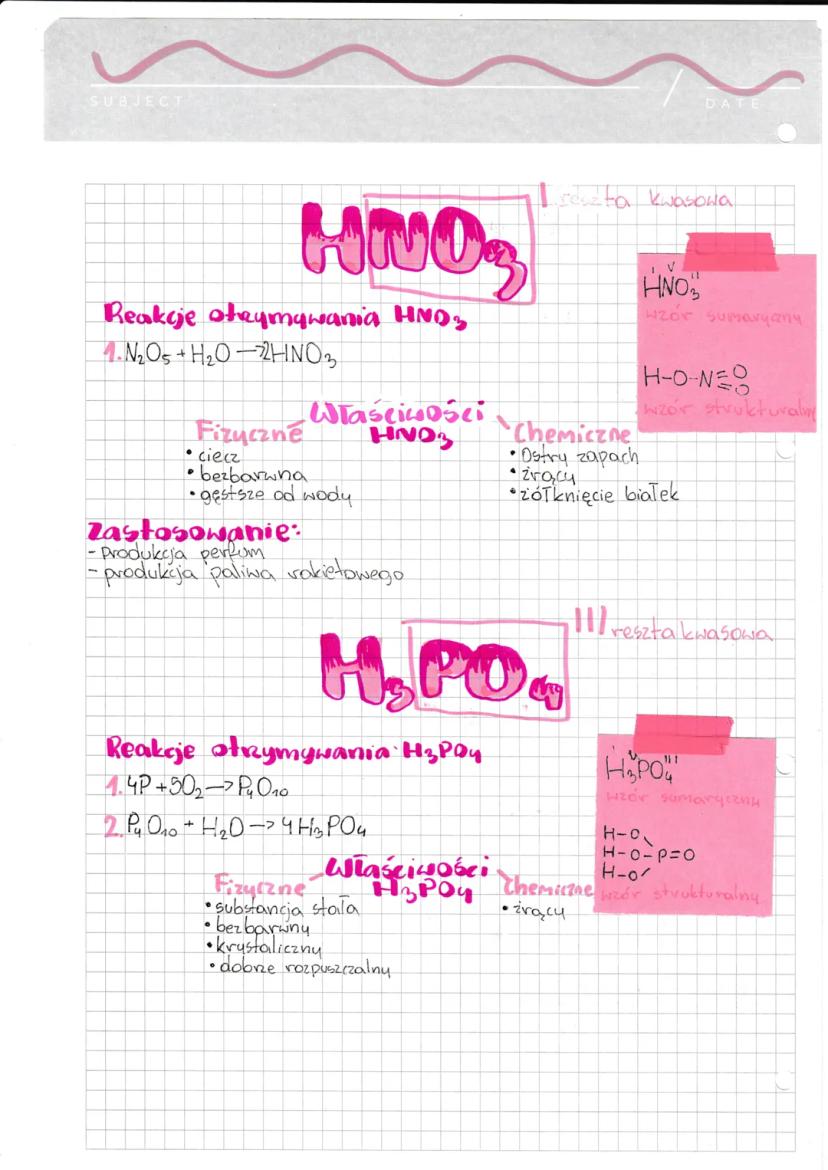 SUBJECT / DATE
HNO₃
I reszta kwasowa
HNO₃
wzór sumaryczny
H-O-N=O
=O
wzór strukturalny
Reakcje otrzymywania HNO₃
1. N₂O₅ + H₂O → 2HNO₃
Właściwości
HNO₃
Fizyczne
• ciecz
• bezbarwna
• gęstsze od wody
Chemiczne
• Ostry zapach
• żrący
• żółtknięcie białek
Zastosowanie:
- produkcja perfum
- produkcja paliwa rakietowego
H₃PO₄
III reszta kwasowa
H₃PO₄
wzór sumaryczny
H-O
H-O-P=O
H-O
wzór strukturalny
Reakcje otrzymywania H₃PO₄
1. 4P + 5O₂ → P₄O₁₀
2. P₄O₁₀ + H₂O → 4H₃PO₄
Właściwości
H₃PO₄
Fizyczne
• substancja stała
• bezbarwny
• krystaliczny
• dobrze rozpuszczalny
Chemiczne
• żrący